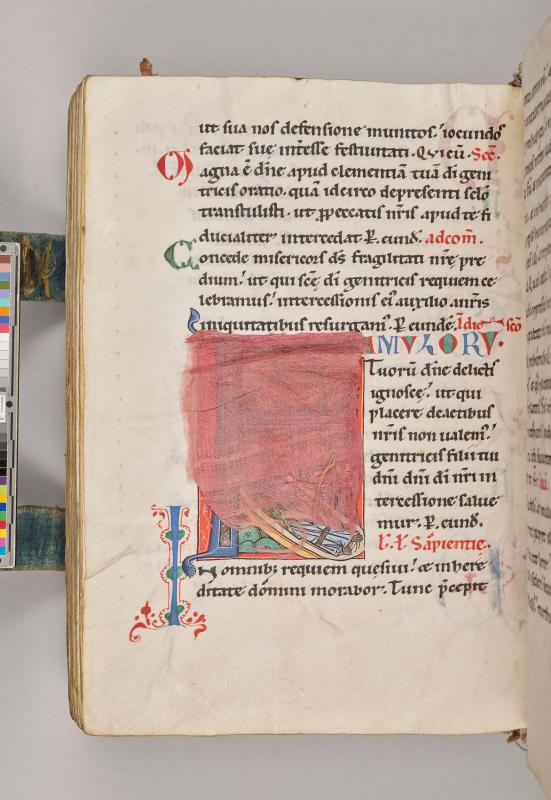 ut sua nos defensione munitos. iocundos
faciat sue int̄esse festiuitati. Qui eū. Sec̄.
Magna ē dn̄e apud clementiā tuā di geni
tricis oratio. quā idcirco de presenti sclō
transtulisti. ut p̱peccatis nr̄is apud te fi
ducialiter intercedat P. eund. ad com̄.
Concede misericors ds̄ fragilitati nr̄e pre
dium. ut qui scē di genitricis requiem ce
lebramus. intercessionis ei᷒ auxilio a nr̄is
iniquitatibus resurgam᷒. P. eundē. In die scō
FAMULORU.
Tuorū dn̄e delictis
ignosce. ut qui
placere de actibus
nr̄is non ualem᷒.
genitricis filii tui
dn̄i dm̄i di nr̄i in
tercessione salue
mur. P. eund.
L. L. Sapientie.
In omnib; requiem quesiui. & in here
ditate domini morabor. Tunc p̄cepit